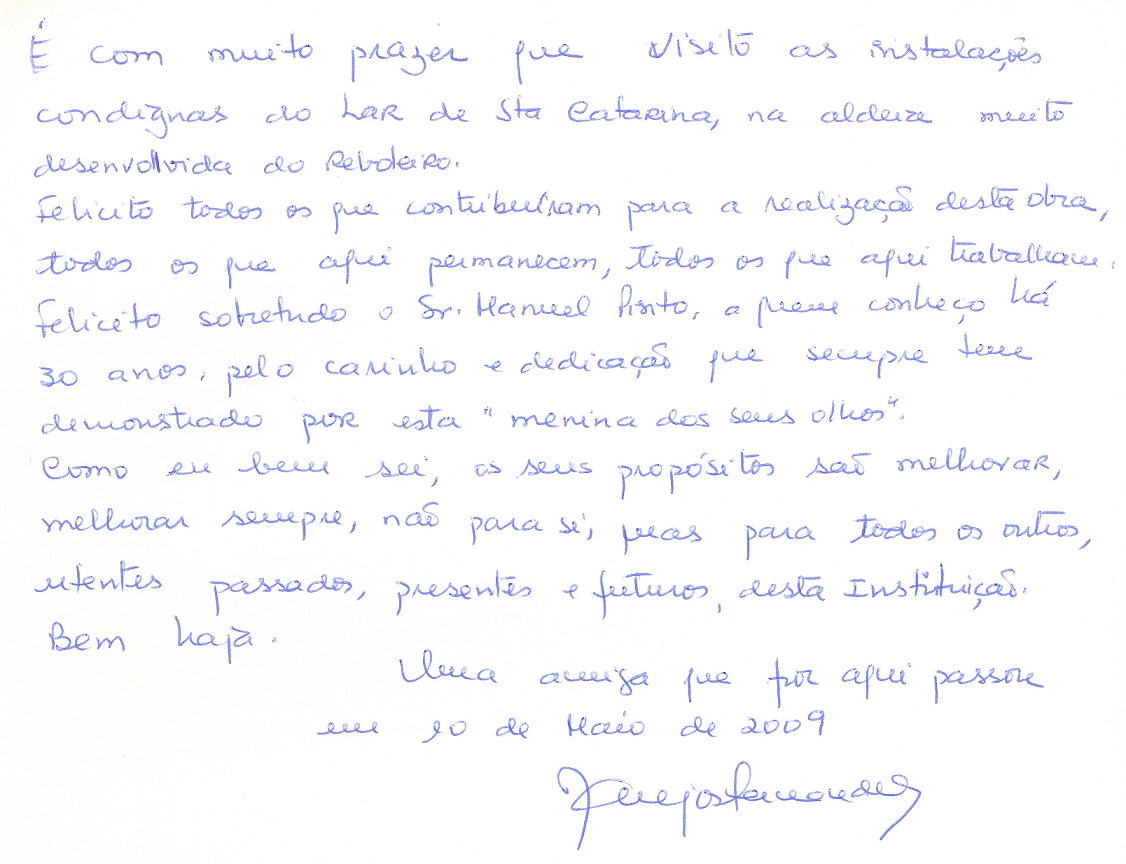 É com muito prazer que visito as instalações
condignas do Lar de Sta Catarina, na aldeia muito
desenvolvida do Reboleiro.
Felicito todos os que contribuíram para a realização desta obra,
todos os que aqui permanecem, todos os que aqui trabalham.
Felicito sobretudo o Sr. Manuel Pinto, a quem conheço há
30 anos, pelo carinho e dedicação que sempre tem
demonstrado por esta "menina dos seus olhos".
Como eu bem sei, os seus propósitos são melhorar,
melhorar sempre, não para si, mas para todos os outros,
utentes passados, presentes e futuros, desta Instituição.
Bem haja.
Uma amiga que por aqui passou
em 10 de Maio de 2009